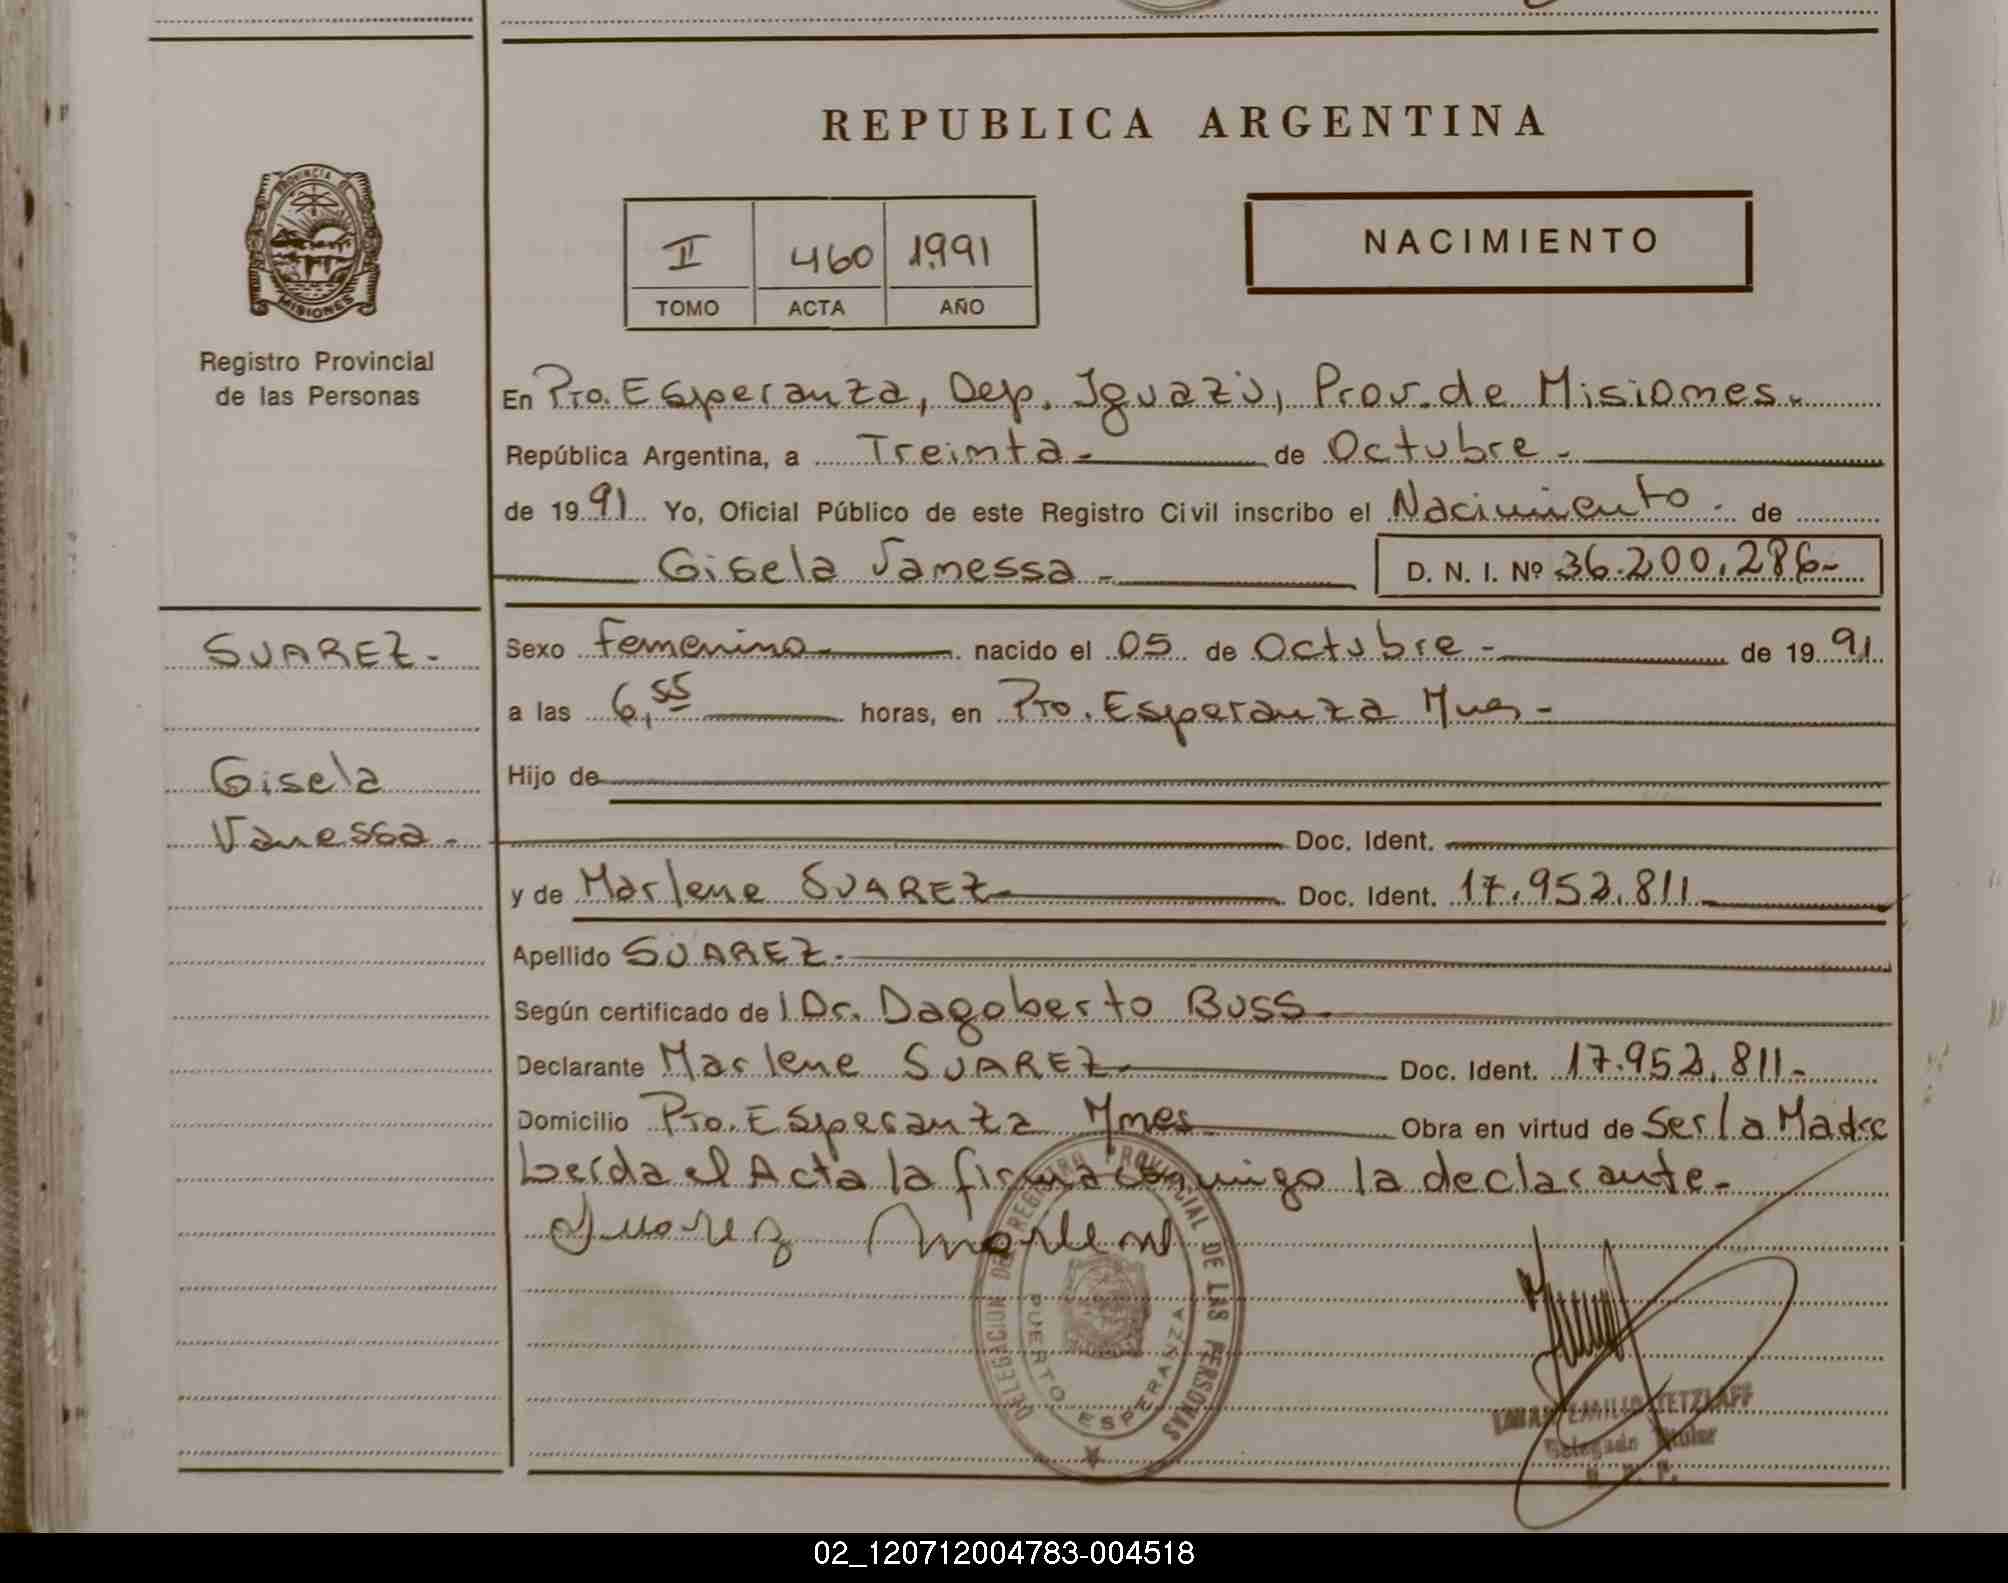 REPUBLICA ARGENTINA
PROVINCIA DE
MISIONES
II 460 1991
TOMO ACTA AÑO
NACIMIENTO
Registro Provincial
de las Personas
En Pto. Esperanza, Dep. Iguazú, Prov. de Misiones.
República Argentina, a Treinta - de Octubre -
de 1991 Yo, Oficial Público de este Registro Civil inscribo el Nacimiento - de
Gisela Vanessa - D. N. I. Nº 36.200.286-
SUAREZ -
Gisela
Vanessa -
Sexo femenino nacido el 05 de Octubre - de 1991
a las 6,55 horas, en Pto. Esperanza Mnes -
Hijo de
Doc. Ident.
y de Marlene SUAREZ Doc. Ident. 17.952.811
Apellido SUAREZ -
Según certificado de l Dr. Dagoberto Buss -
Declarante Marlene SUAREZ - Doc. Ident. 17.952.811-
Domicilio Pto. Esperanza Mnes Obra en virtud de Ser la Madre
Leída el Acta la firma conmigo la declarante -
Suarez Marlene
DELEGACION DE REGISTRO PROVINCIAL DE LAS PERSONAS
PUERTO ESPERANZA
EMILIO TETZLAFF
Delegado Titular
02_120712004783-004518